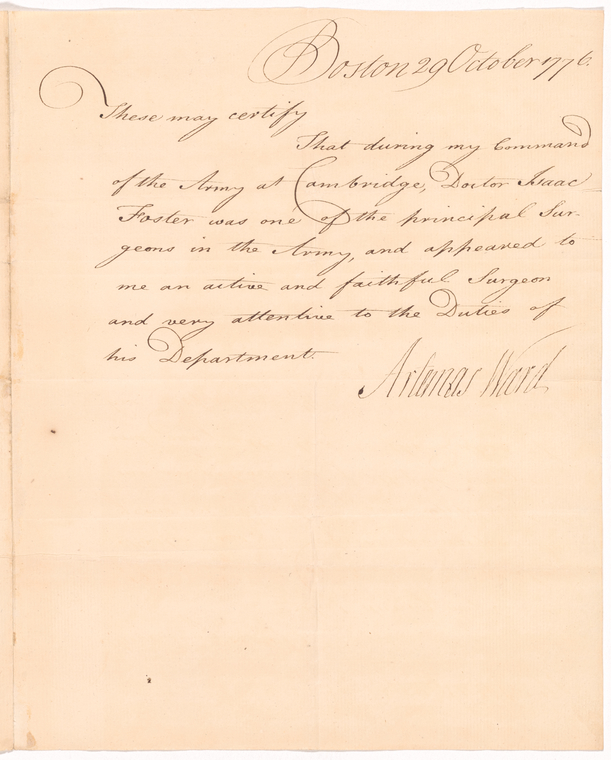 Boston 29 October 1776.
These may certify
That during my Command
of the Army at Cambridge, Doctor Isaac
Foster was one of the principal Sur-
geons in the Army, and appeared to
me an active and faithful Surgeon
and very attentive to the Duties of
his Department.
Artemas Ward